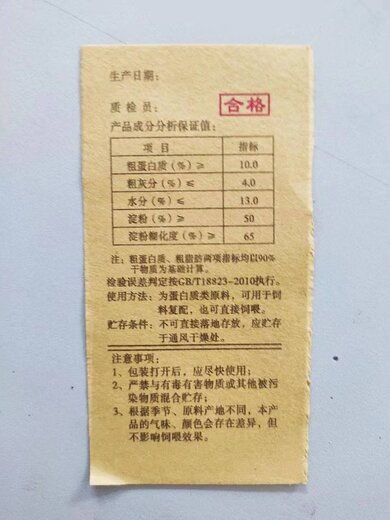 生产日期：
质检员：
合格
产品成分分析保证值：
项目 指标
粗蛋白质（%）≥ 10.0
粗灰分（%）≤ 4.0
水分（%）≤ 13.0
淀粉（%）≥ 50
淀粉糊化度（%）≥ 65
注：粗蛋白质、粗脂肪两项指标均以90%
干物质为基础计算。
检验误差判定按GB/T18823-2010执行。
使用方法：为蛋白质类原料，可用于饲
料复配，也可直接饲喂。
贮存条件：不可直接落地存放，应贮存
于通风干燥处。
注意事项：
1、包装打开后，应尽快使用；
2、严禁与有毒有害物质或其他被污
染物质混合贮存；
3、根据季节、原料产地不同，本产
品的气味、颜色会存在差异，但
不影响饲喂效果。